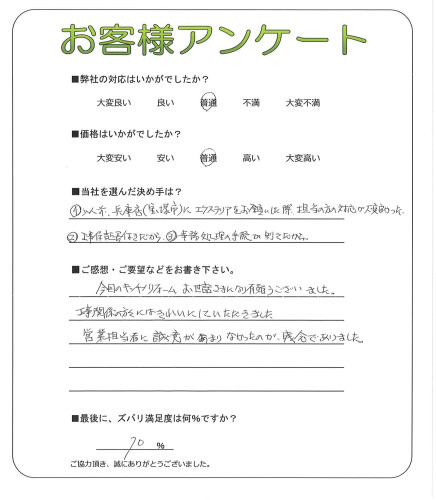 お客様アンケート
■弊社の対応はいかがでしたか？
大変良い 良い 普通 不満 大変不満
■価格はいかがでしたか？
大変安い 安い 普通 高い 大変高い
■当社を選んだ決め手は？
① 兵庫店(宝塚市)に エクステリアをお願いした際、担当の方の対応が良かった
② 工事保証書付きだから、③
■ご感想・ご要望などをお書き下さい。
今回のキッチンリフォーム お世話さまになり有難うございました。
工事関係の方々にはきれいにしていただきました
営業担当者に誠意があまりなかったのが、残念でありました。
■最後に、ズバリ満足度は何％ですか？
70 ％
ご協力頂き、誠にありがとうございました。